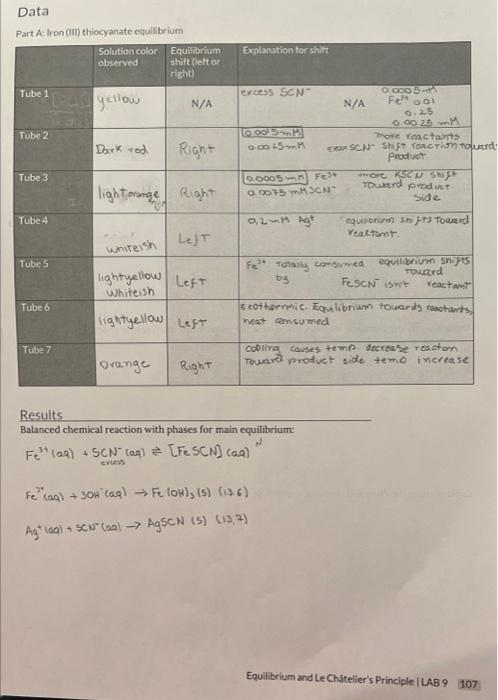 Data
Part A: Iron (III) thiocyanate equilibrium
Solution color observed
Equilibrium shift (left or right)
Explanation for shift
Tube 1
yellow
N/A
excess SCN⁻
N/A
Fe³⁺ 001
0.25
0.0025 mM
Tube 2
Dark red
Right
0.0015mM
0.0025mM
more reactants
SCN- Shift reaction toward
product
Tube 3
light orange
Right
0.0005mM Fe³⁺
0.0075 mM SCN⁻
more KSCN shift
Toward product
side
Tube 4
whiteish
Left
0.2 mM Ag⁺
equilibrium shifts Toward
reactant.
Tube 5
lightyellow
whiteish
Left
Fe³⁺ Totally consumed
by
equilibrium shifts
Toward
FeSCN isn't reactant
Tube 6
lightyellow
Left
Exothermic. Equilibrium towards reactants,
heat consumed
Tube 7
Orange
Right
cooling causes temp. decrease reacton
Toward product side temp increase
Results
Balanced chemical reaction with phases for main equilibrium:
Fe³⁺ (aq) + SCN⁻ (aq) ⇌ [FeSCN] (aq)
excess
(aq) + 3OH⁻ (aq) → Fe(OH)₃ (s) (13.6)
Ag⁺ (aq) + SCN⁻ (aq) → AgSCN (s) (13.7)
Equilibrium and Le Châtelier's Principle | LAB 9 107